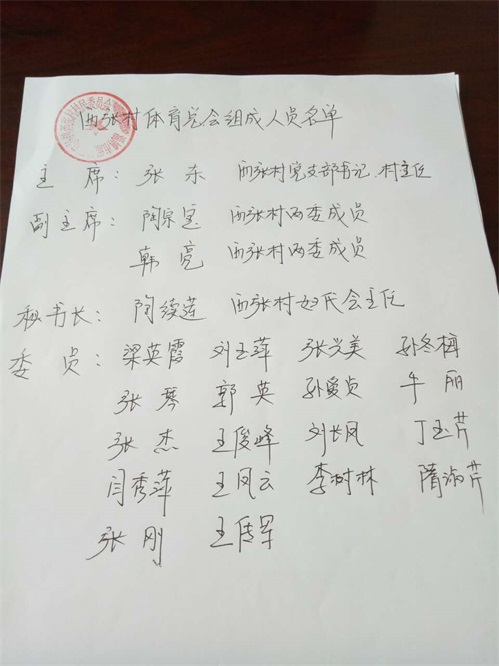 西张村体育总会组成人员名单
主 席： 张 东 西张村党支部书记、村主任
副主席： 陶宗宝 西张村两委成员
韩 亮 西张村两委成员
秘书长： 陶续莲 西张村妇代会主任
委 员： 梁英霞 刘玉萍 张兴美 孙冬梅
张 琴 郭 英 孙爱贞 牛 丽
张 杰 王俊峰 刘长凤 丁玉芹
闫秀萍 王凤云 李树林 隋淑芹
张 刚 王传军